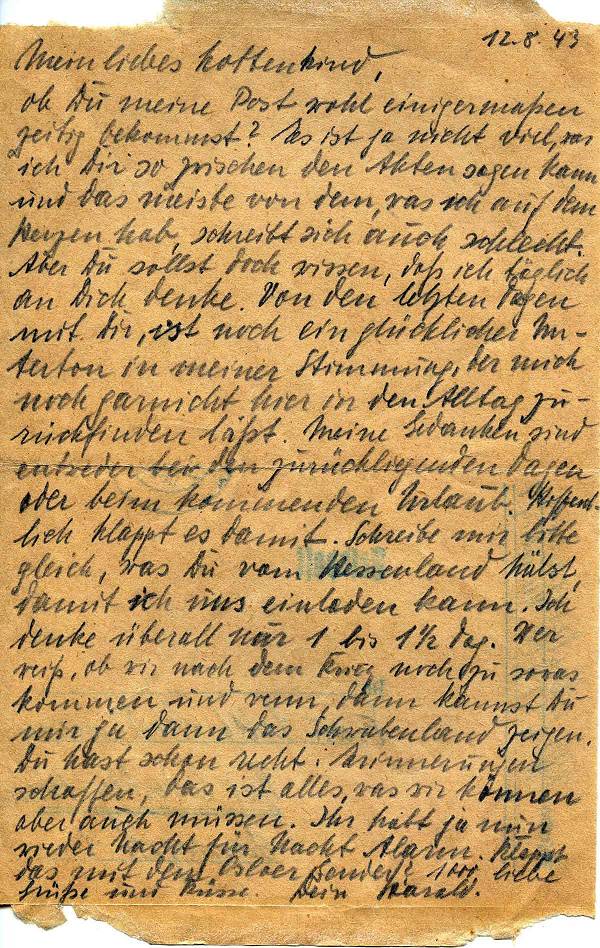 12.8.43
Mein liebes Kottenkind,
ob Du meine Post wohl einigermaßen
zeitig bekommst? Es ist ja nicht viel, was
ich Dir so zwischen den Akten sagen kann
und das meiste von dem, was ich auf dem
Herzen hab, schreibt sich auch schlecht.
Aber Du sollst doch wissen, daß ich täglich
an Dich denke. Von den letzten Tagen
mit Dir, ist noch ein glücklicher Un-
terton in meiner Stimmung, der mich
noch garnicht hier in den Alltag zu-
rückfinden läßt. Meine Gedanken sind
entweder bei den zurückliegenden Tagen
oder beim kommenden Urlaub. Hoffent-
lich klappt es damit. Schreibe mir bitte
gleich, was Du vom Hessenland hälst,
damit ich uns einladen kann. Ich
denke überall nur 1 bis 1½ Tag. Wer
weiß, ob wir nach dem Krieg noch zu sowas
kommen und wenn, dann kannst Du
mir ja dann das Schwabenland zeigen.
Du hast schon recht: Erinnerungen
schaffen, das ist alles, was wir können
aber auch müssen. Ihr habt ja nun
wieder Nacht für Nacht Alarm. Klappt
das mit dem Osloer Sender? 1000 liebe
Grüße und Küsse. Dein Harald.